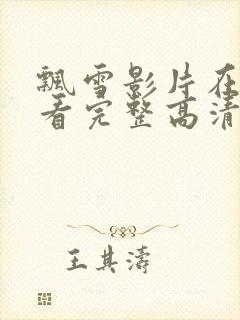 飘雪影片在
看完整高清
王其濤